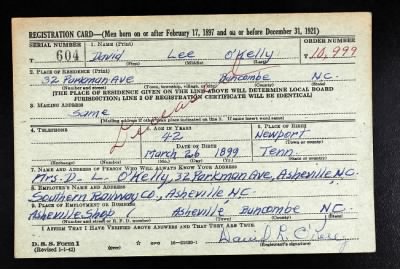 REGISTRATION CARD—(Men born on or after February 17, 1897 and on or before December 31, 1921)
SERIAL NUMBER 1. NAME (Print) ORDER NUMBER
T 604 David Lee O'Kelly T10,999
(First) (Middle) (Last)
2. PLACE OF RESIDENCE (Print)
32 Parkman Ave Buncombe N.C.
(Number and street) (Town, township, village, or city) (County) (State)
[THE PLACE OF RESIDENCE GIVEN ON THE LINE ABOVE WILL DETERMINE LOCAL BOARD
JURISDICTION; LINE 2 OF REGISTRATION CERTIFICATE WILL BE IDENTICAL]
3. MAILING ADDRESS
Same
[Mailing address if other than place indicated on line 2. If same insert word same]
4. TELEPHONE 5. AGE IN YEARS 6. PLACE OF BIRTH
42 Newport
DATE OF BIRTH (Town or county)
March 1899 Tenn.
(Exchange) (Number) (Mo.) (Day) (Yr.) (State or country)
7. NAME AND ADDRESS OF PERSON WHO WILL ALWAYS KNOW YOUR ADDRESS
Mrs. D. L. O'Kelly, 32 Parkman Ave, Asheville, N.C.
8. EMPLOYER'S NAME AND ADDRESS
Southern Railway Co., Asheville, N.C.
9. PLACE OF EMPLOYMENT OR BUSINESS
Asheville Shop Asheville Buncombe N.C.
(Number and street or R. F. D. number) (Town) (County) (State)
I AFFIRM THAT I HAVE VERIFIED ABOVE ANSWERS AND THAT THEY ARE TRUE.
D. S. S. Form 1
(Revised 1-1-42) (over) (Registrant's signature)